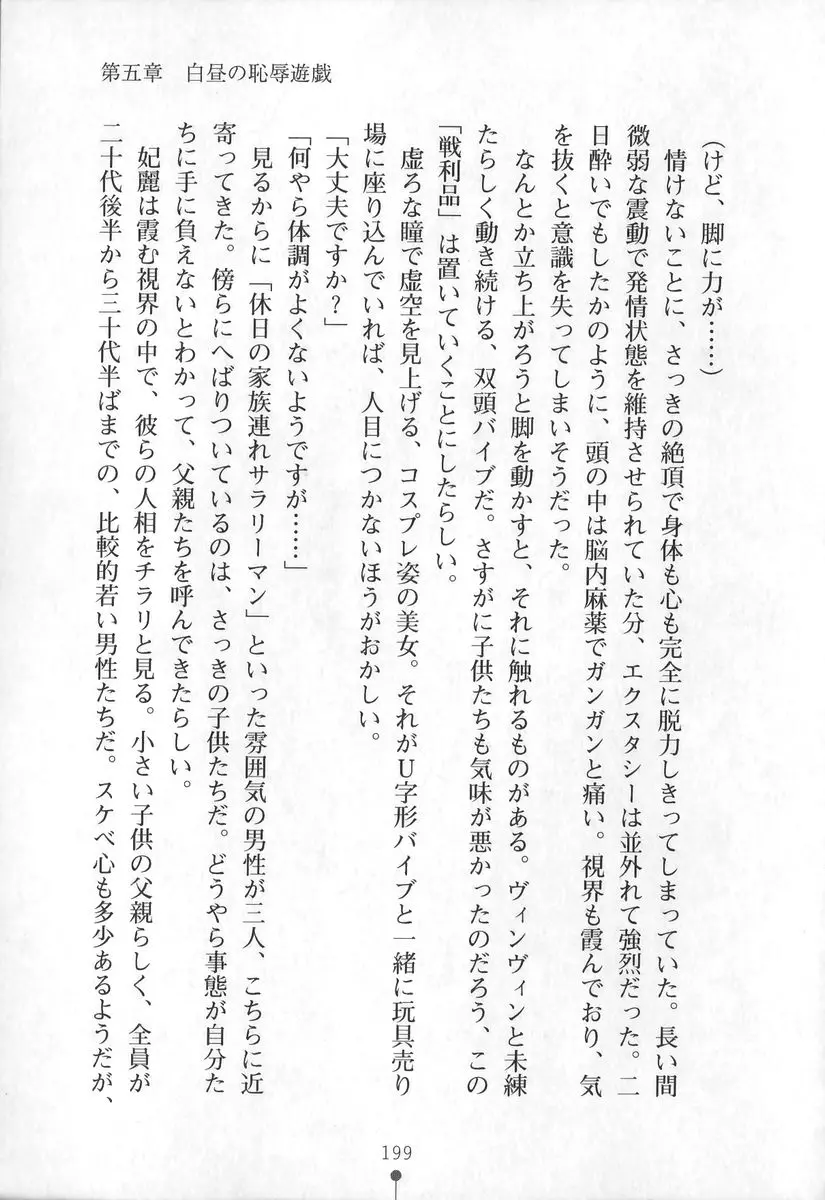 第五章 白昼の恥辱遊戯
（けど、脚に力が……）
情けないことに、さっきの絶頂で身体も心も完全に脱力しきってしまっていた。長い間
微弱な震動で発情状態を維持させられていた分、エクスタシーは並外れて強烈だった。二
日酔いでもしたかのように、頭の中は脳内麻薬でガンガンと痛い。視界も霞んでおり、気
を抜くと意識を失ってしまいそうだった。
なんとか立ち上がろうと脚を動かすと、それに触れるものがある。ヴィンヴィンと未練
たらしく動き続ける、双頭バイブだ。さすがに子供たちも気味が悪かったのだろう、この
「戦利品」は置いていくことにしたらしい。
虚ろな瞳で虚空を見上げる、コスプレ姿の美女。それがＵ字形バイブと一緒に玩具売り
場に座り込んでいれば、人目につかないほうがおかしい。
「大丈夫ですか？」
「何やら体調がよくないようですが……」
見るからに「休日の家族連れサラリーマン」といった雰囲気の男性が三人、こちらに近
寄ってきた。傍らにへばりついているのは、さっきの子供たちだ。どうやら事態が自分た
ちに手に負えないとわかって、父親たちを呼んできたらしい。
妃麗は霞む視界の中で、彼らの人相をチラリと見る。小さい子供の父親らしく、全員が
二十代後半から三十代半ばまでの、比較的若い男性たちだ。スケベ心も多少あるようだが、
199